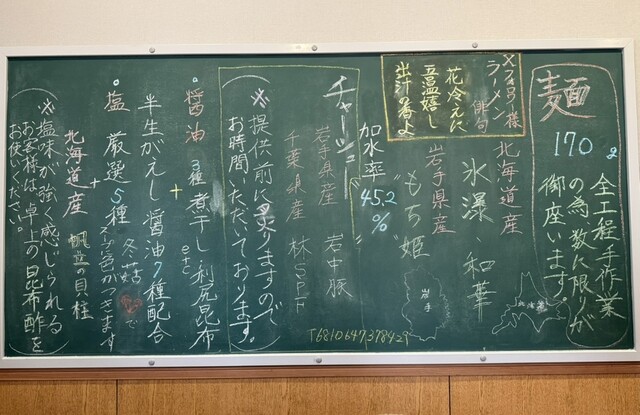 麺
170g
全工程手作業
の為、数に限りが
御座います。
Xフォロワー様
ラーメン
俳句
花冷えに
五温嬉し
出汁の香よ
北海道産
氷瀑、和華
北海道
岩手県産
"もち姫"
岩手
加水率
45.2
%
チャーシュー
岩手県産 岩中豚
千葉県産 林SPF
(※提供前に炙りますので
お時間いただいております。)
T6810647378421
醤油 3種煮干し、利尻昆布
etc
+
半生がえし醤油7種配合
塩 厳選5種 冬菇
で
スープの色がつきます
+
北海道産 帆立の貝柱
(※塩味が強く感じられる
お客様は、卓上の昆布酢を
お使いください。)